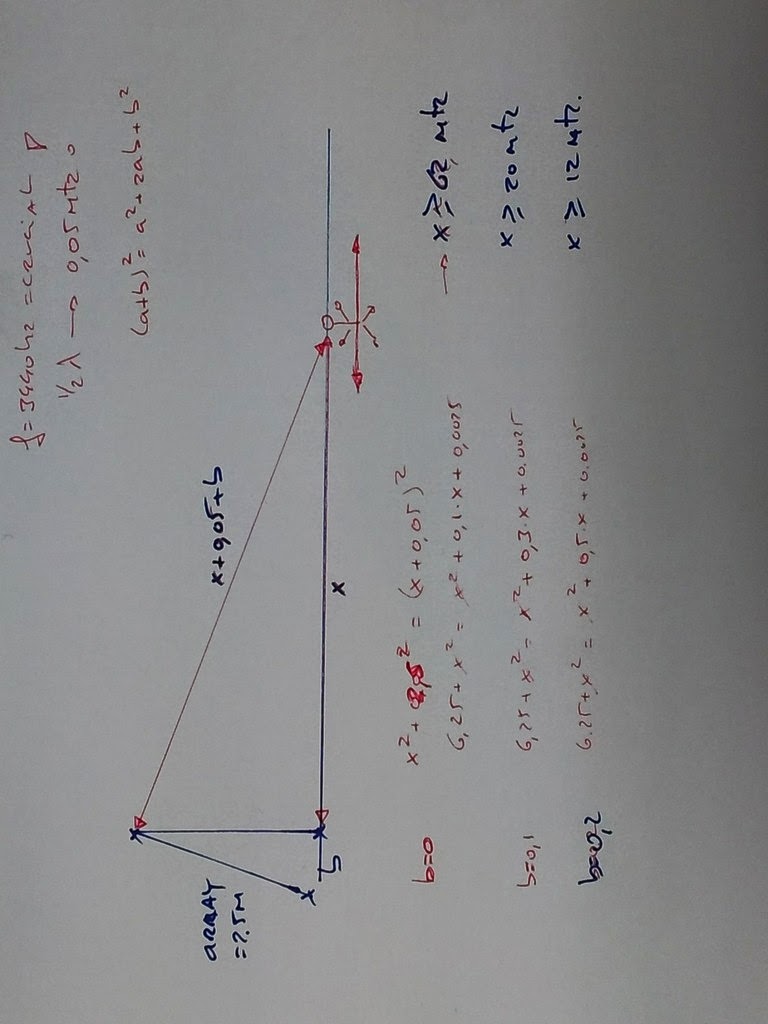 f=3440hz = cruciaal
½ λ → 0,05 mtr
(a+b)² = a² + 2ab + b²
x+0,05+b
x
ARRAY
=2.5M
b
b=0
x² + 2,5² = (x+0,05)²
6,25 + x² = x² + 0,1·x + 0,0025
→ x ≥ 62, mtr
b=0,1
6,25 + x² = x² + 0,3·x + 0.0025
x ≥ 20 mtr
b=0,2
6.25 + x² = x² + 0,5·x + 0.0025
x ≥ 12 mtr.